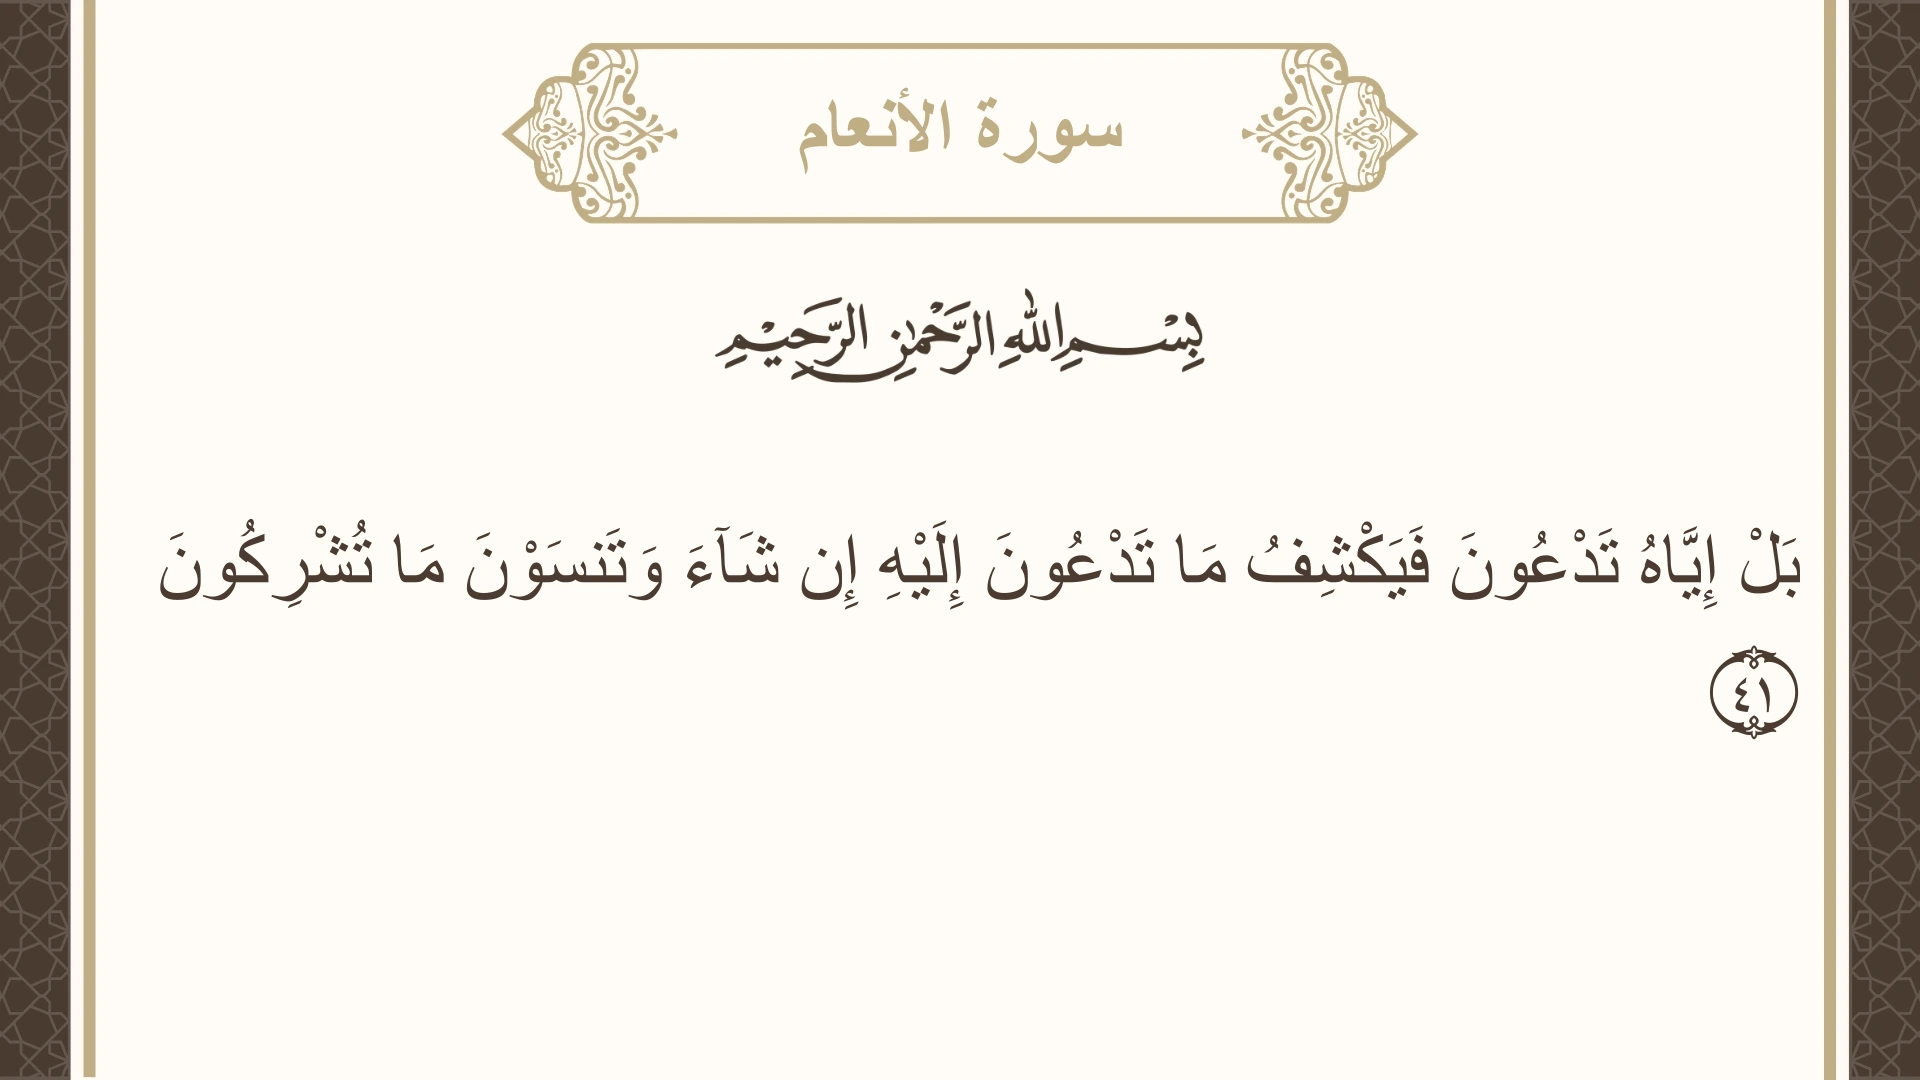 سورة الأنعام
بِسْمِ اللهِ الرَّحْمٰنِ الرَّحِيْمِ
بَلْ إِيَّاهُ تَدْعُونَ فَيَكْشِفُ مَا تَدْعُونَ إِلَيْهِ إِن شَآءَ وَتَنسَوْنَ مَا تُشْرِكُونَ
٤١